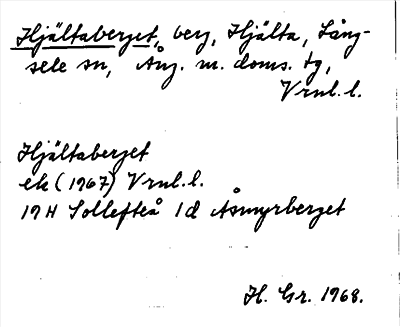 Hjältaberget, berg, Hjälta, Lång-
sele sn, Ång. m. doms. tg,
Vrnl. l.
Hjältaberget
ek (1967) Vrnl. l.
19H Sollefteå 1d Åsmyrberget
H. Gr. 1968.